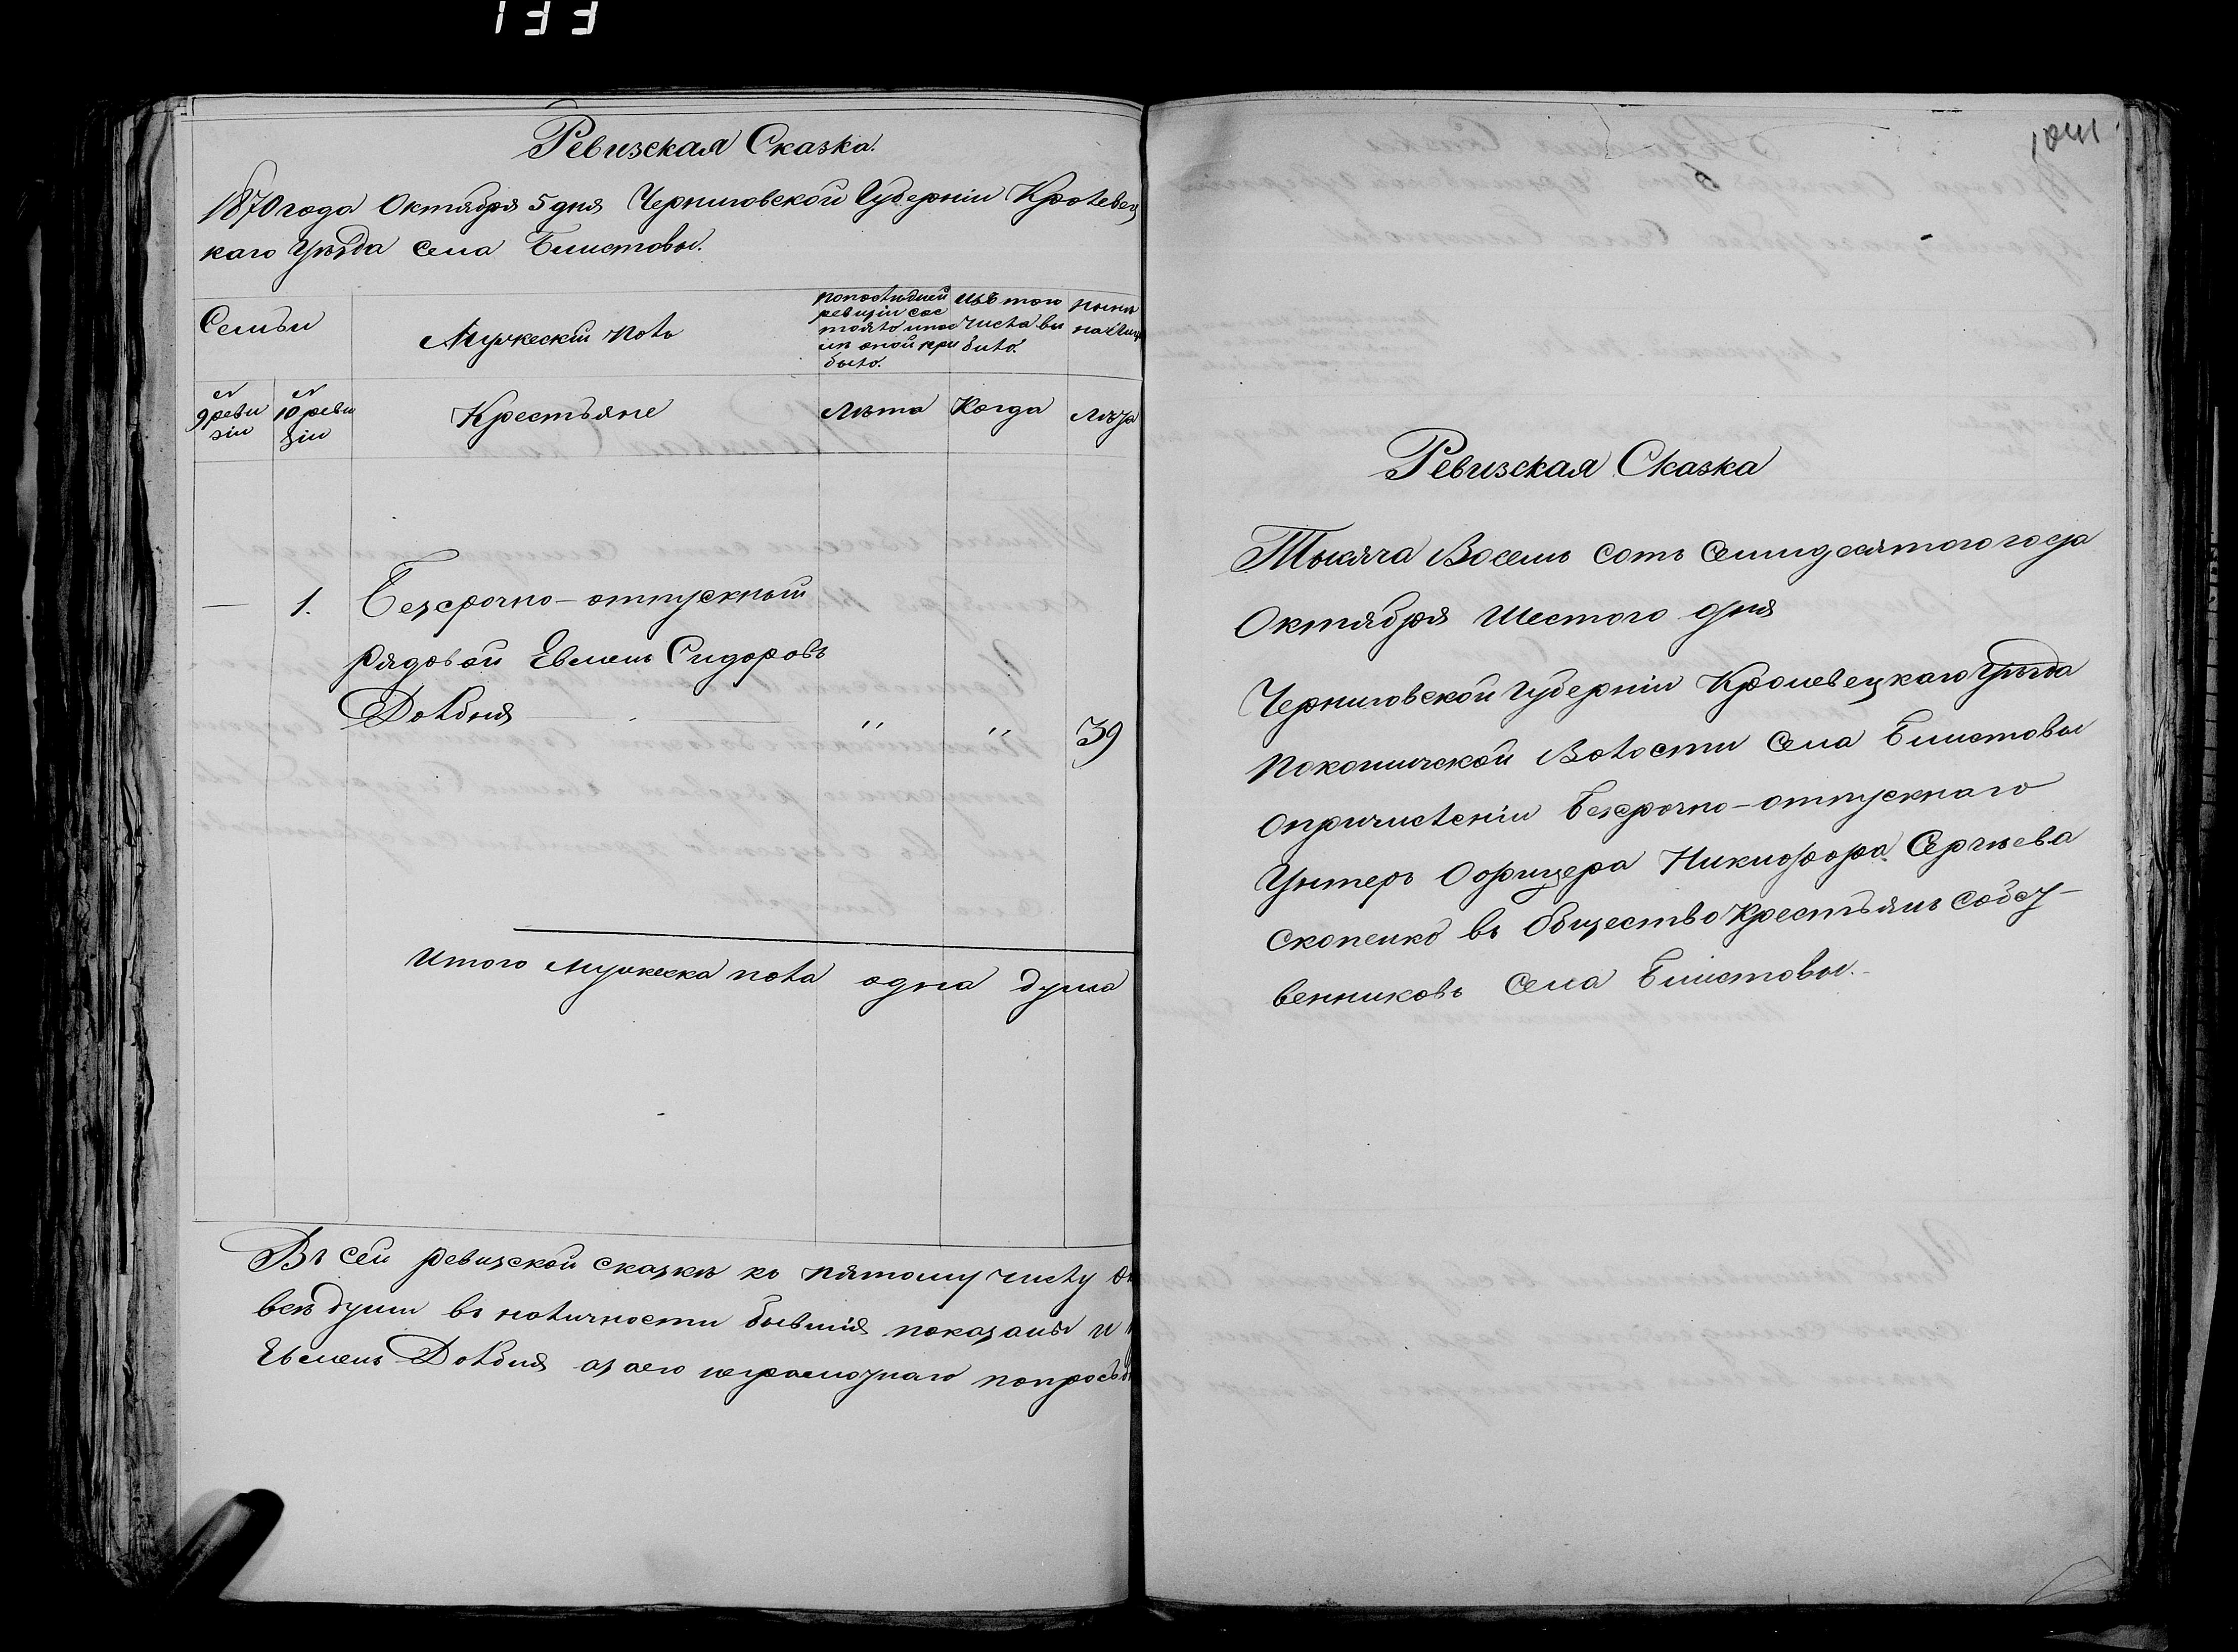 133
Ревизская Сказка.
1870 года Октября 5 дня Черниговской Губерніи Кролевец
каго Уѣзда села Блистовы.
Семьи
Мужескій полъ
по последней ревизіи сос тояло и после оной при было.
изъ того числа вы было.
ныне на лицо
№ 9 реви зіи
№ 10 реви зіи
Крестьяне
Лѣта
Когда
Лѣта
— 1. Безсрочно-отпускный
рядовой Евменъ Сидоровъ
Довбня " " 39
Итого мужеска пола одна душа
Въ сей ревизской сказкѣ по пятому числу
всѣ души въ наличности бывшія показаны и
Евменъ Довбня а за его неграмотнаго по просьбѣ
Ревизская Сказка
Тысяча Восемь сотъ семидесятого года
Октября Шестого дня
Черниговской Губерніи Кролевецкаго Уѣзда
Покошичской Волости Села Блистовы
О причисленіи безсрочно-отпускнаго
Унтеръ Офицера Никифора Сергѣева
Скопенко въ Общество Крестьянъ собст-
венниковъ Села Блистовы.-